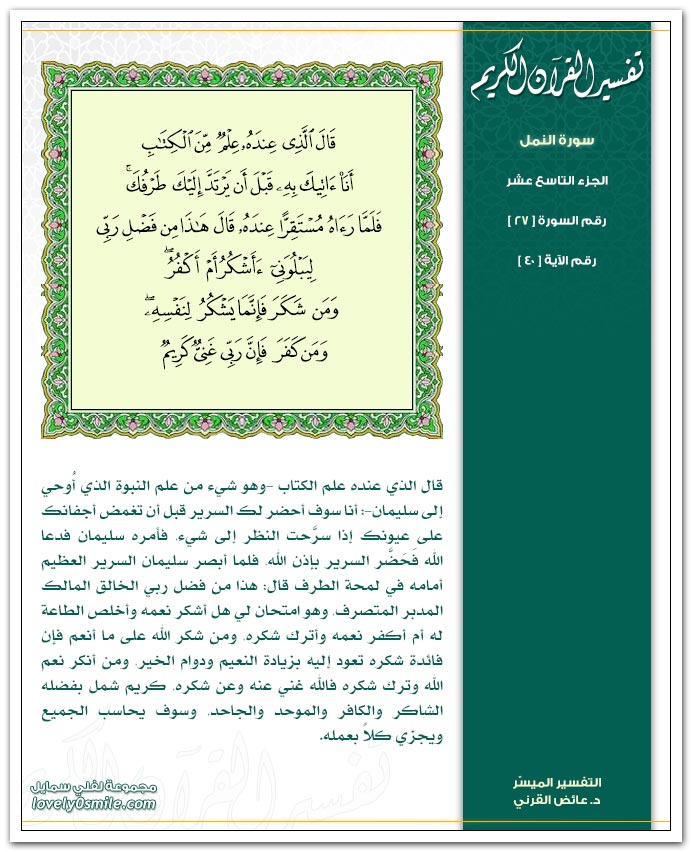 تفسير القرآن الكريم
سورة النمل
الجزء التاسع عشر
رقم السورة [ ٢٧ ]
رقم الآية [ ٤٠ ]
قَالَ ٱلَّذِى عِندَهُۥ عِلْمٌ مِّنَ ٱلْكِتَٰبِ
أَنَا۠ ءَاتِيكَ بِهِۦ قَبْلَ أَن يَرْتَدَّ إِلَيْكَ طَرْفُكَ ۚ
فَلَمَّا رَءَاهُ مُسْتَقِرًّا عِندَهُۥ قَالَ هَٰذَا مِن فَضْلِ رَبِّى
لِيَبْلُوَنِىٓ ءَأَشْكُرُ أَمْ أَكْفُرُ ۖ
وَمَن شَكَرَ فَإِنَّمَا يَشْكُرُ لِنَفْسِهِۦ ۖ
وَمَن كَفَرَ فَإِنَّ رَبِّى غَنِىٌّ كَرِيمٌ
قال الذي عنده علم الكتاب -وهو شيء من علم النبوة الذي أُوحي
إلى سليمان-: أنا سوف أحضر لك السرير قبل أن تغمض أجفانك
على عيونك إذا سرَّحت النظر إلى شيء، فأمره سليمان فدعا
الله فَحَضَّر السرير بإذن الله، فلما أبصر سليمان السرير العظيم
أمامه في لمحة الطرف قال: هذا من فضل ربي الخالق المالك
المدبر المتصرف، وهو امتحان لي هل أشكر نعمه وأخلص الطاعة
له أم أكفر نعمه وأترك شكره، ومن شكر الله على ما أنعم فإن
فائدة شكره تعود إليه بزيادة النعيم ودوام الخير، ومن أنكر نعم
الله وترك شكره فالله غني عنه وعن شكره، كريم شمل بفضله
الشاكر والكافر والموحد والجاحد، وسوف يحاسب الجميع
ويجزي كلاً بعمله.
التفسير الميسّر
د. عائض القرني
مجموعة لفلي سمايل
lovely0smile.com
تفسير القرآن الكريم